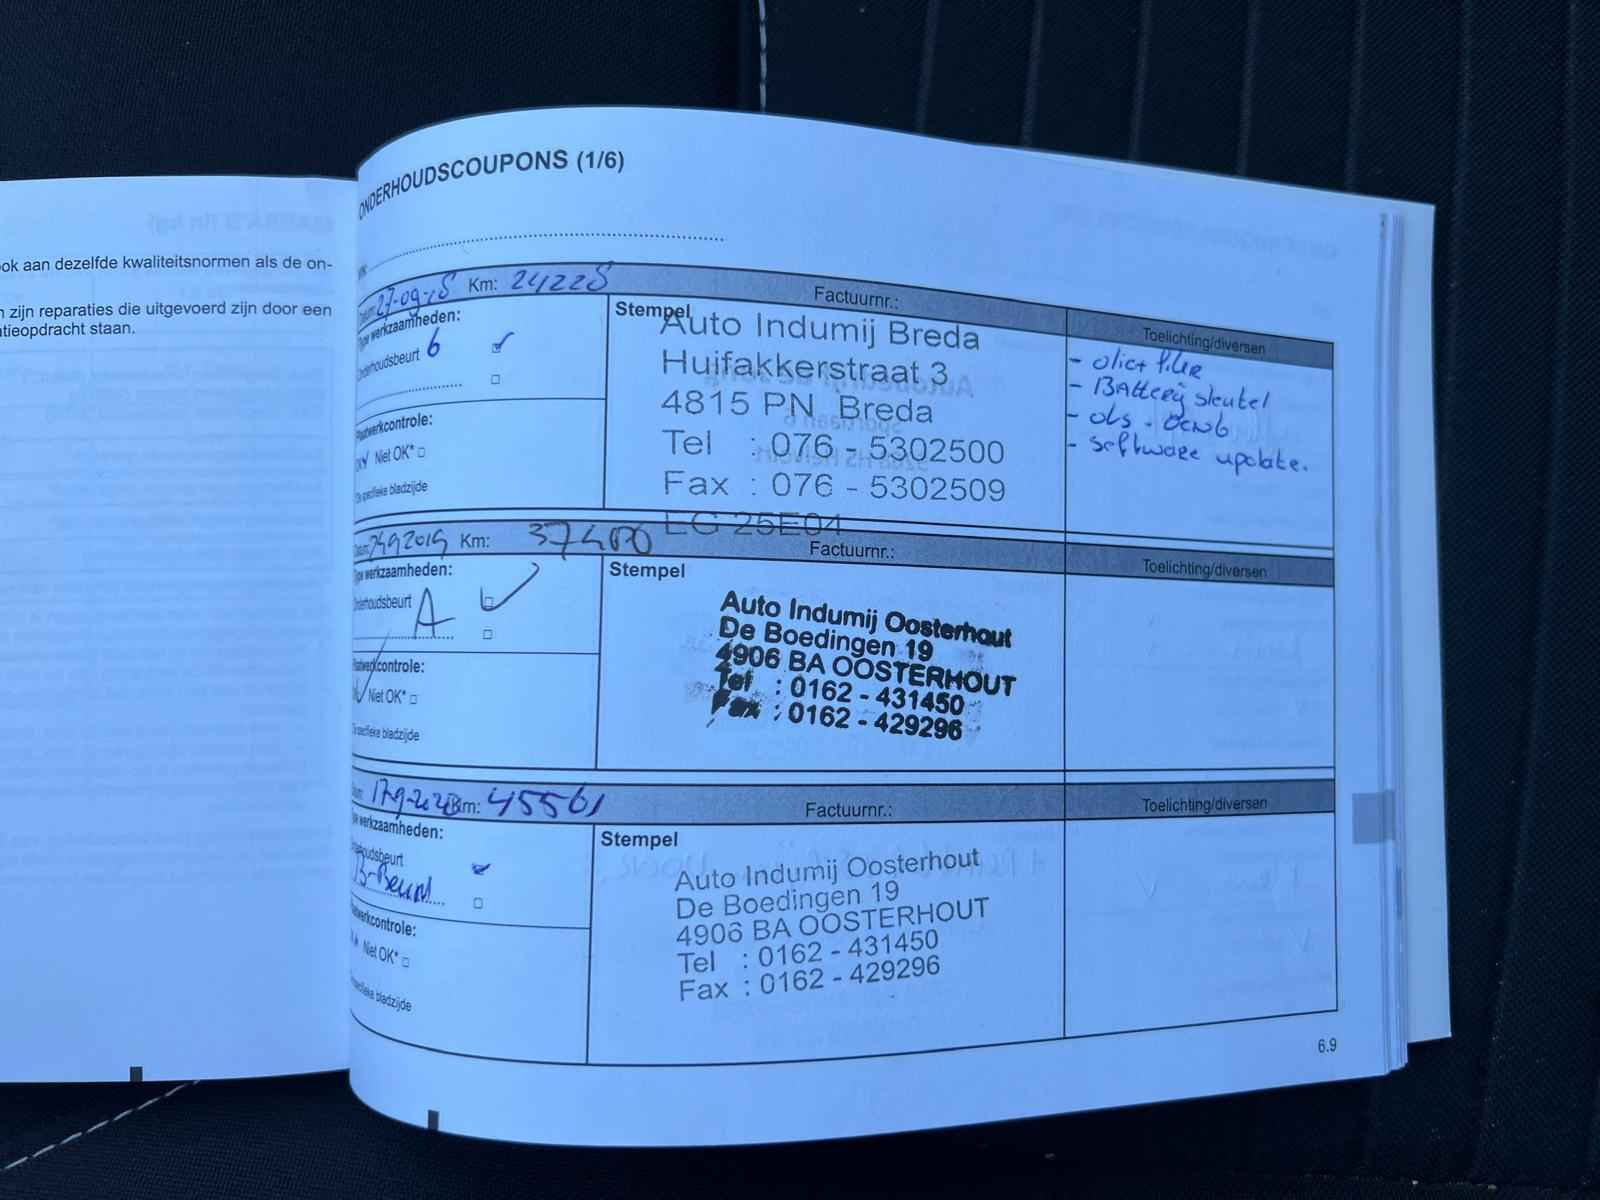 ook aan dezelfde kwaliteitsnormen als de on-
n zijn reparaties die uitgevoerd zijn door een
atieopdracht staan.
ONDERHOUDSCOUPONS (1/6)
Datum: 27-09-18 Km: 24228 Factuurnr.: Toelichting/diversen
Type werkzaamheden:
Onderhoudsbeurt 6
Plaatwerkcontrole:
Niet OK*
Zie specifieke bladzijde
Stempel
Auto Indumij Breda
Huifakkerstraat 3
4815 PN Breda
Tel : 076 - 5302500
Fax : 076 - 5302509
EG 25E04
- olie+filter
- Battery sleutel
- software update.
Km: 37400 Factuurnr.: Toelichting/diversen
Type werkzaamheden:
Onderhoudsbeurt
A
Plaatwerkcontrole:
Niet OK*
Zie specifieke bladzijde
Stempel
Auto Indumij Oosterhout
De Boedingen 19
4906 BA OOSTERHOUT
Tel : 0162 - 431450
Fax : 0162 - 429296
17-9-2020 Km: 45561 Factuurnr.: Toelichting/diversen
Type werkzaamheden:
Onderhoudsbeurt
B-Beurt
Plaatwerkcontrole:
Niet OK*
Zie specifieke bladzijde
Stempel
Auto Indumij Oosterhout
De Boedingen 19
4906 BA OOSTERHOUT
Tel : 0162 - 431450
Fax : 0162 - 429296
6.9